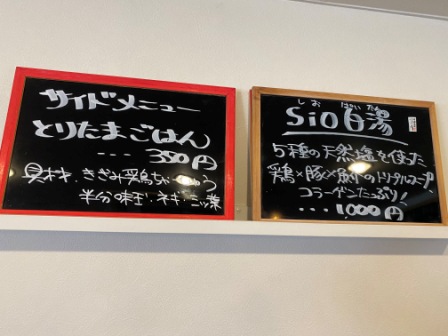 サイドメニュー
とりたまごはん
--- 350円
具材・きざみ鶏ちゃーしゅう
半分味玉・ネギ・三ッ葉
しお ぱいたん
Sio白湯
5種の天然塩を使った
鶏×豚×魚介のトリプルスープ
コラーゲンたっぷり!
---- 1000円